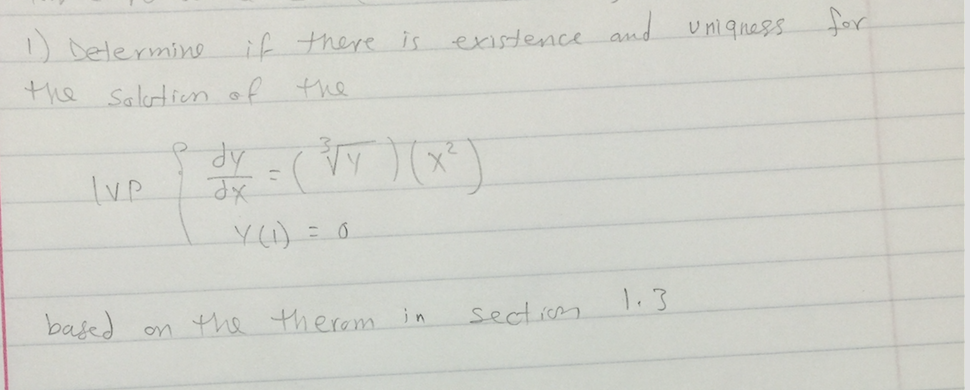 1) Determine if there is existence and uniqness for
the solution of the
IVP { dy/dx = (∛y)(x²)
y(1) = 0
based on the theram in section 1.3